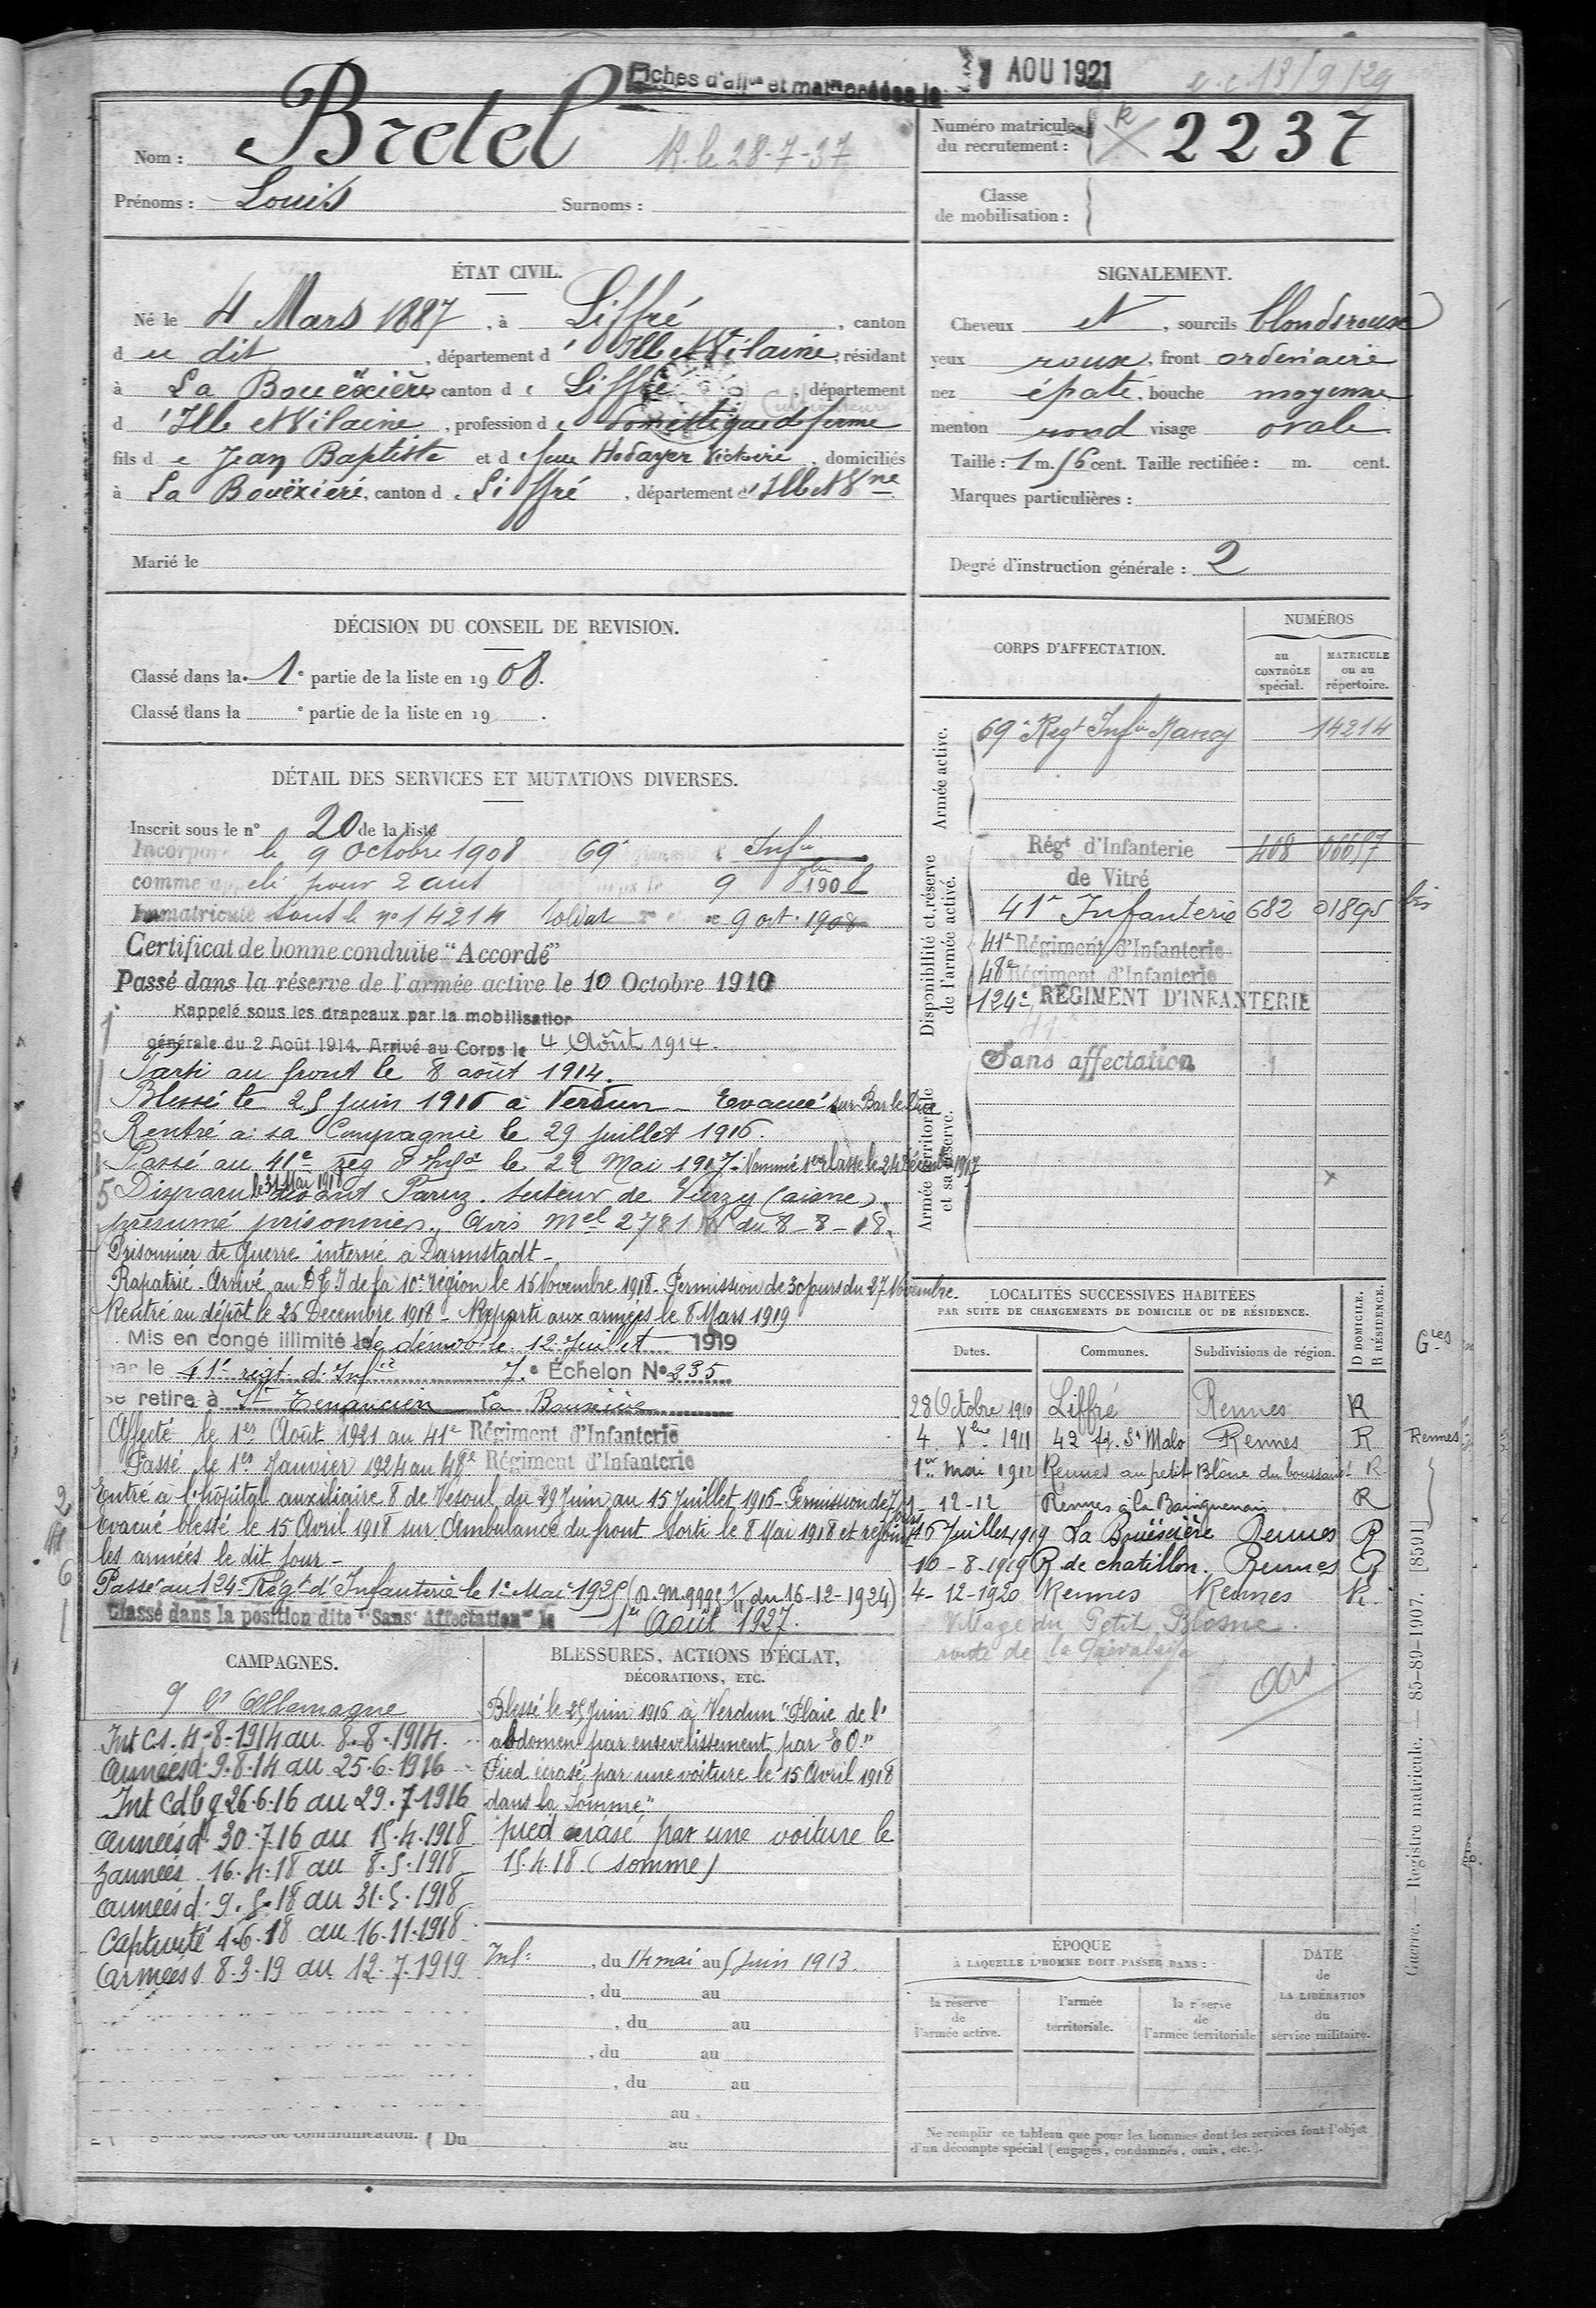 Fiches d'aff<sup>on</sup> et mat<sup>on</sup> créées le 7 AOU 1921
13/9/29
Nom : Bretel R. le 28-7-37
Prénoms : Louis Surnoms :
Numéro matricule du recrutement : R 2237
Classe de mobilisation :
ÉTAT CIVIL.
Né le 4 Mars 1887, à Liffré, canton
d u dit, département d' Ille et Vilaine, résidant
à La Bouëxière canton d e Liffré département
d 'Ille et Vilaine, profession d e Domestique de ferme Cultivateur
fils d e Jean Baptiste et d e feue Hodayer Victoire, domiciliés
à La Bouëxière, canton d e Liffré, département d' Ille et V<sup>ne</sup>
Marié le
SIGNALEMENT.
Cheveux et, sourcils blonds roux
yeux roux, front ordinaire
nez épaté, bouche moyenne
menton rond visage ovale
Taille : 1 m. 56 cent. Taille rectifiée : m. cent.
Marques particulières :
Degré d'instruction générale : 2
DÉCISION DU CONSEIL DE REVISION.
Classé dans la 1<sup>e</sup> partie de la liste en 1908.
Classé dans la <sup>e</sup> partie de la liste en 19 .
DÉTAIL DES SERVICES ET MUTATIONS DIVERSES.
Inscrit sous le n° 20 de la liste
Incorporé le 9 Octobre 1908 69<sup>e</sup> Inf<sup>ie</sup>
comme appelé pour 2 ans 9 8<sup>bre</sup> 1908
Immatriculé sous le n° 14214 soldat 2<sup>e</sup> cl 9 oct. 1908
Certificat de bonne conduite "Accordé"
Passé dans la réserve de l'armée active le 10 Octobre 1910
Rappelé sous les drapeaux par la mobilisation
générale du 2 Août 1914. Arrivé au Corps le 4 Août 1914.
Parti au front le 8 août 1914.
Blessé le 25 juin 1916 à Verdun - Evacué sur Bar le Duc
Rentré à sa Compagnie le 29 juillet 1916.
Passé au 41<sup>e</sup> rég d'Inf<sup>ie</sup> le 22 Mai 1917. Nommé 1<sup>ère</sup> classe le 24 Décembre 1917
Disparu le 31 Mai 1918 devant Parcy. secteur de Vierzy (aisne)
présumé prisonnier. Avis M<sup>el</sup> 2781 W du 8-8-18.
Prisonnier de guerre interné à Darmstadt -
Rapatrié - Arrivé au D.E.I de la 10<sup>e</sup> région le 16 Novembre 1918. Permission de 30 jours du 27 Novembre.
Rentré au dépôt le 26 Decembre 1918 - Reparti aux armées le 8 Mars 1919
Mis en congé illimité de démob. le 12 Juillet 1919
par le 41<sup>e</sup> régt d'Inf<sup>ie</sup> 7<sup>e</sup> Échelon N° 235
se retire à La Bouexière
Affecté le 1<sup>er</sup> Août 1921 au 41<sup>e</sup> Régiment d'Infanterie
Passé le 1<sup>er</sup> Janvier 1924 au 48<sup>e</sup> Régiment d'Infanterie
Entré à l'hôpital auxiliaire 8 de Vesoul du 29 Juin au 15 Juillet 1916 - Permission de 7 jours
Evacué blessé le 15 Avril 1918 sur Ambulance du front. Sorti le 8 Mai 1918 et rejoint
les armées le dit jour -
Passé au 124<sup>e</sup> Rég<sup>t</sup> d'Infanterie le 1<sup>er</sup> Mai 1925 (D.M. 9995 1/11 du 16-12-1924)
Classé dans la position dite "Sans Affectation" le 1<sup>er</sup> Août 1927.
CORPS D'AFFECTATION.
NUMÉROS
au CONTRÔLE spécial.
MATRICULE ou au répertoire.
Armée active.
69<sup>e</sup> Reg<sup>t</sup> Inf<sup>ie</sup> Nancy 14214
Disponibilité et réserve de l'armée active.
Rég<sup>t</sup> d'Infanterie de Vitré 408 06657
41<sup>e</sup> Infanterie 682 01895 bis
41<sup>e</sup> Régiment d'Infanterie
48<sup>e</sup> Régiment d'Infanterie
124<sup>e</sup> RÉGIMENT D'INFANTERIE
Sans affectation
Armée territoriale et sa réserve.
LOCALITÉS SUCCESSIVES HABITÉES
PAR SUITE DE CHANGEMENTS DE DOMICILE OU DE RÉSIDENCE.
Dates. Communes. Subdivisions de région. D DOMICILE. R RÉSIDENCE.
28 Octobre 1910 Liffré Rennes R
4 X<sup>bre</sup> 1911 42 f<sup>g</sup>. S<sup>t</sup> Malo Rennes R
1<sup>er</sup> mai 1912 Rennes au petit Blône R
1-12-12 Rennes à la R
16 Juillet 1919 La Bouëxière Rennes R
10-8-1919 R de chatillon. Rennes R
4-12-1920 Rennes Rennes R.
Village du Petit Blosne.
route de la
G<sup>res</sup>
Rennes
CAMPAGNES.
C<sup>e</sup> Allemagne
Int C.S. 4-8-1914 au 8-8-1914.
Armées d. 9.8.14 au 25-6-1916
Int C d b g 26.6.16 au 29.7.1916
Armées d. 30.7.16 au 15.4.1918
Z armées 16.4.18 au 8.5.1918
Armées d. 9.5.18 au 31.5.1918
Captivité 1.6.18 au 16.11.1918
Armées 8.3.19 au 12.7.1919
BLESSURES, ACTIONS D'ÉCLAT, DÉCORATIONS, ETC.
Blessé le 25 Juin 1916 à Verdun "Plaie de l'
abdomen par ensevelissement par E.O."
Pied écrasé par une voiture le 15 Avril 1918
dans la Somme."
pied écrasé par une voiture le
15.4.18. (somme)
Inf<sup>ie</sup>, du 14 mai au 5 juin 1913.
, du au
, du au
, du au
, du au
au
voies de communication. Du au
ÉPOQUE
À LAQUELLE L'HOMME DOIT PASSER DANS :
la réserve de l'armée active.
l'armée territoriale.
la réserve de l'armée territoriale
DATE de LA LIBÉRATION du service militaire.
Ne remplir ce tableau que pour les hommes dont les services font l'objet
d'un décompte spécial (engagés, condamnés, omis, etc.).
Guerre. — Registre matricule. — 85-89-1907. [8591]